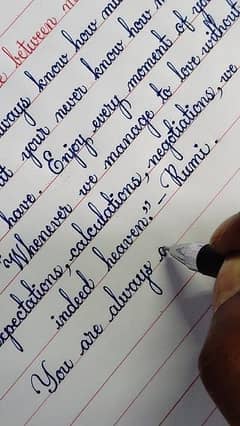 e between m
ways know how mu
t your never know how m
have. Enjoy every moment of yo
"Whenever we manage to love without
xpectations, calculations, negotiations, we
indeed heaven." – Rumi.
You are always